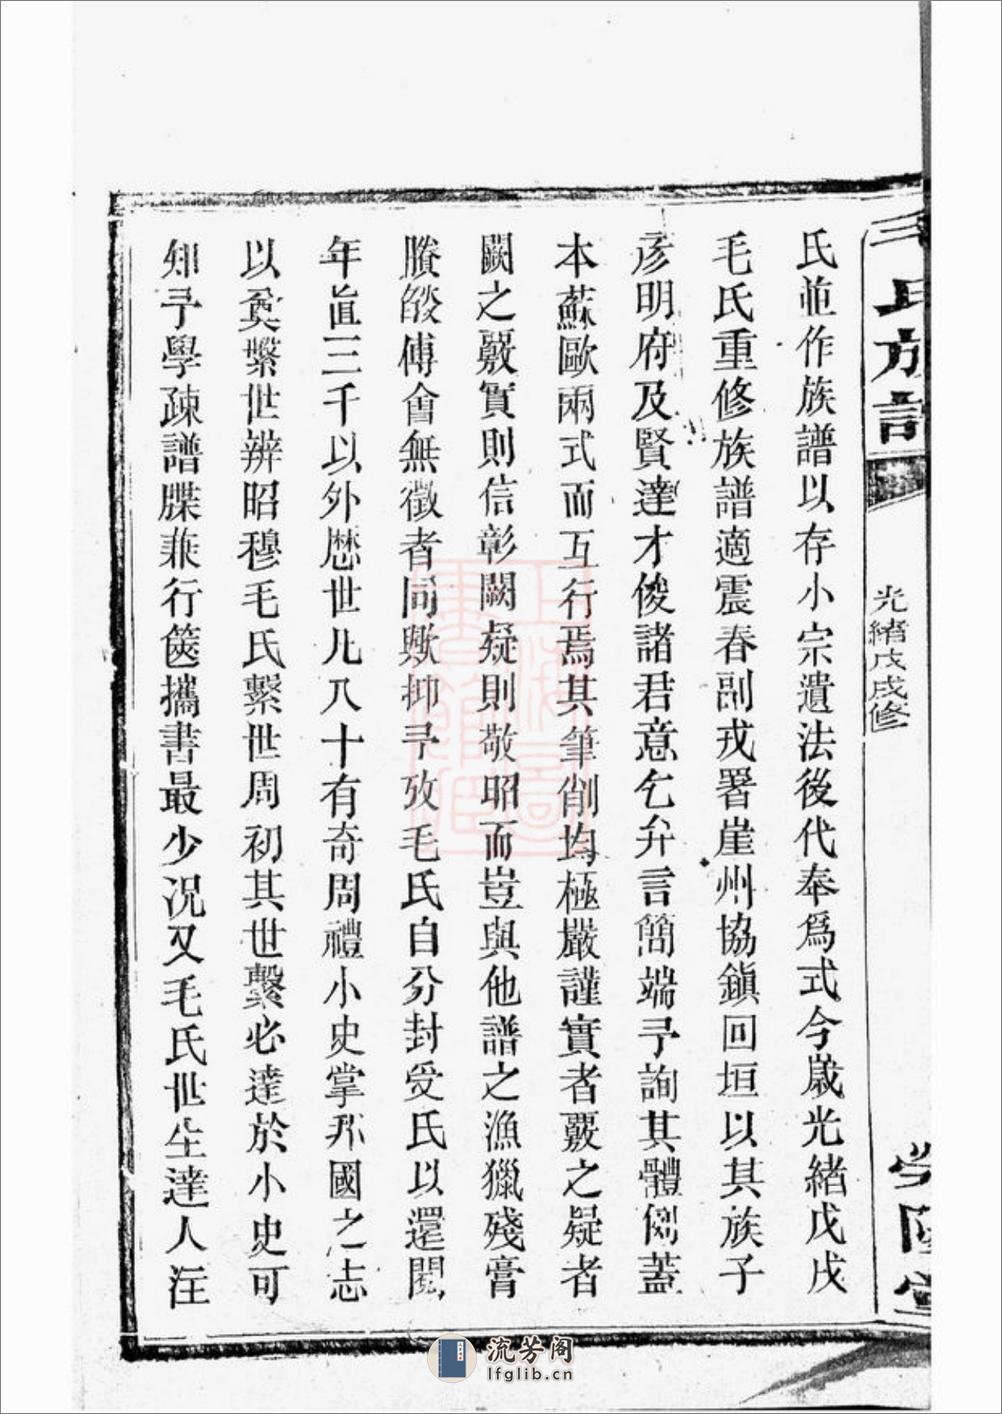 毛氏族譜
光緒戊戌修
氏並作族譜以存小宗遺法後代奉爲式今歲光緒戊戌
毛氏重修族譜適震春副戎署崖州協鎮回垣以其族子
彥明府及賢達才俊諸君意乞弁言簡端予詢其體例蓋
本蘇歐兩式而互行焉其筆削均極嚴謹實者覈之疑者
闕之覈實則信彰闕疑則敬昭而豈與他譜之漁獵殘膏
賸馥傅會無徵者同歟抑予攷毛氏自分封受氏以還閱
年直三千以外歷世凡八十有奇周禮小史掌邦國之志
以奠繫世辨昭穆毛氏繫世周初其世繫必達於小史可
知予學疎譜牒兼行篋攜書最少况又毛氏世生達人注
流芳阁
lfglib.cn